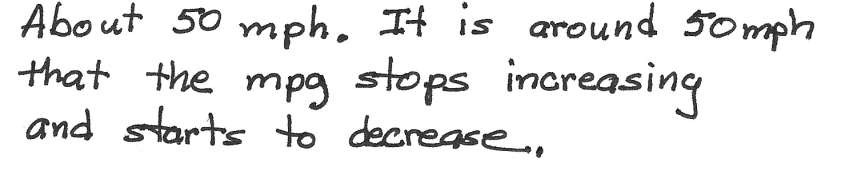 About 50 mph. It is around 50mph
that the mpg stops increasing
and starts to decrease.